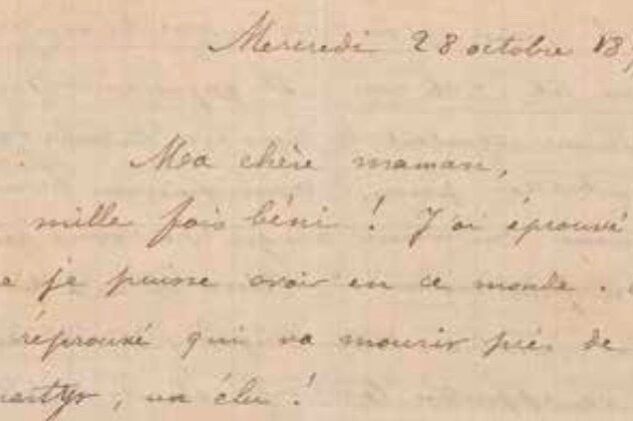 Mercredi 28 octobre 18
Ma chère maman,
mille fois béni ! J'ai éprouvé
je puisse avoir en ce monde.
réprouvé qui va mourir près de
martyr, un élu !